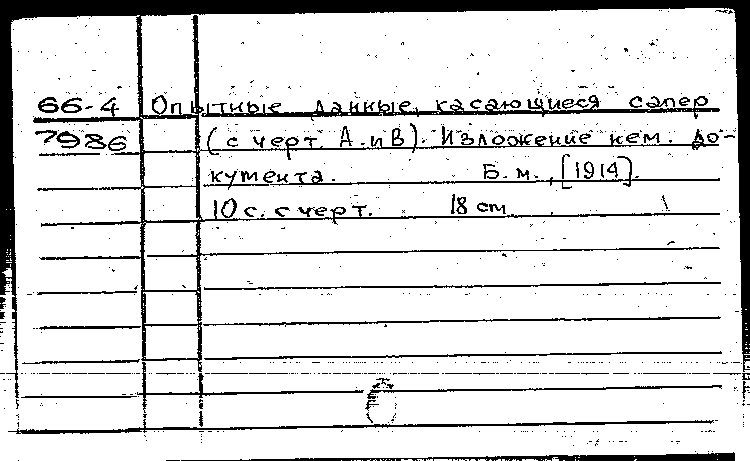 66-4 Опытные данные, касающиеся сапер
7986 (с черт. А. и В). Изложение нем. до-
кумента. Б.м., [1914].
10 с. с черт. 18 cm